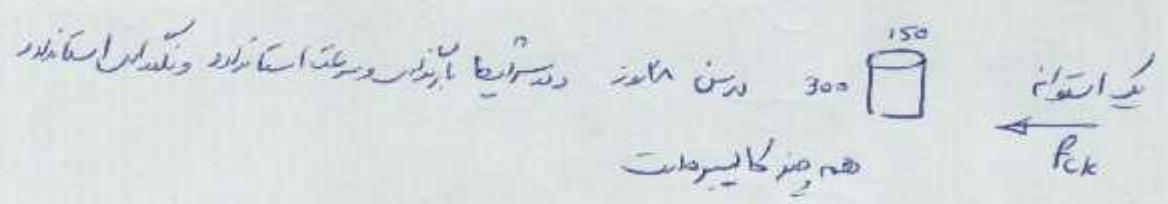 150
یک استوانه 300 در سن ۲۸ روز و در شرایط بارگذاری و سرعت استاندارد و نگهداری استاندارد
fck
همه چیز کالیبره است